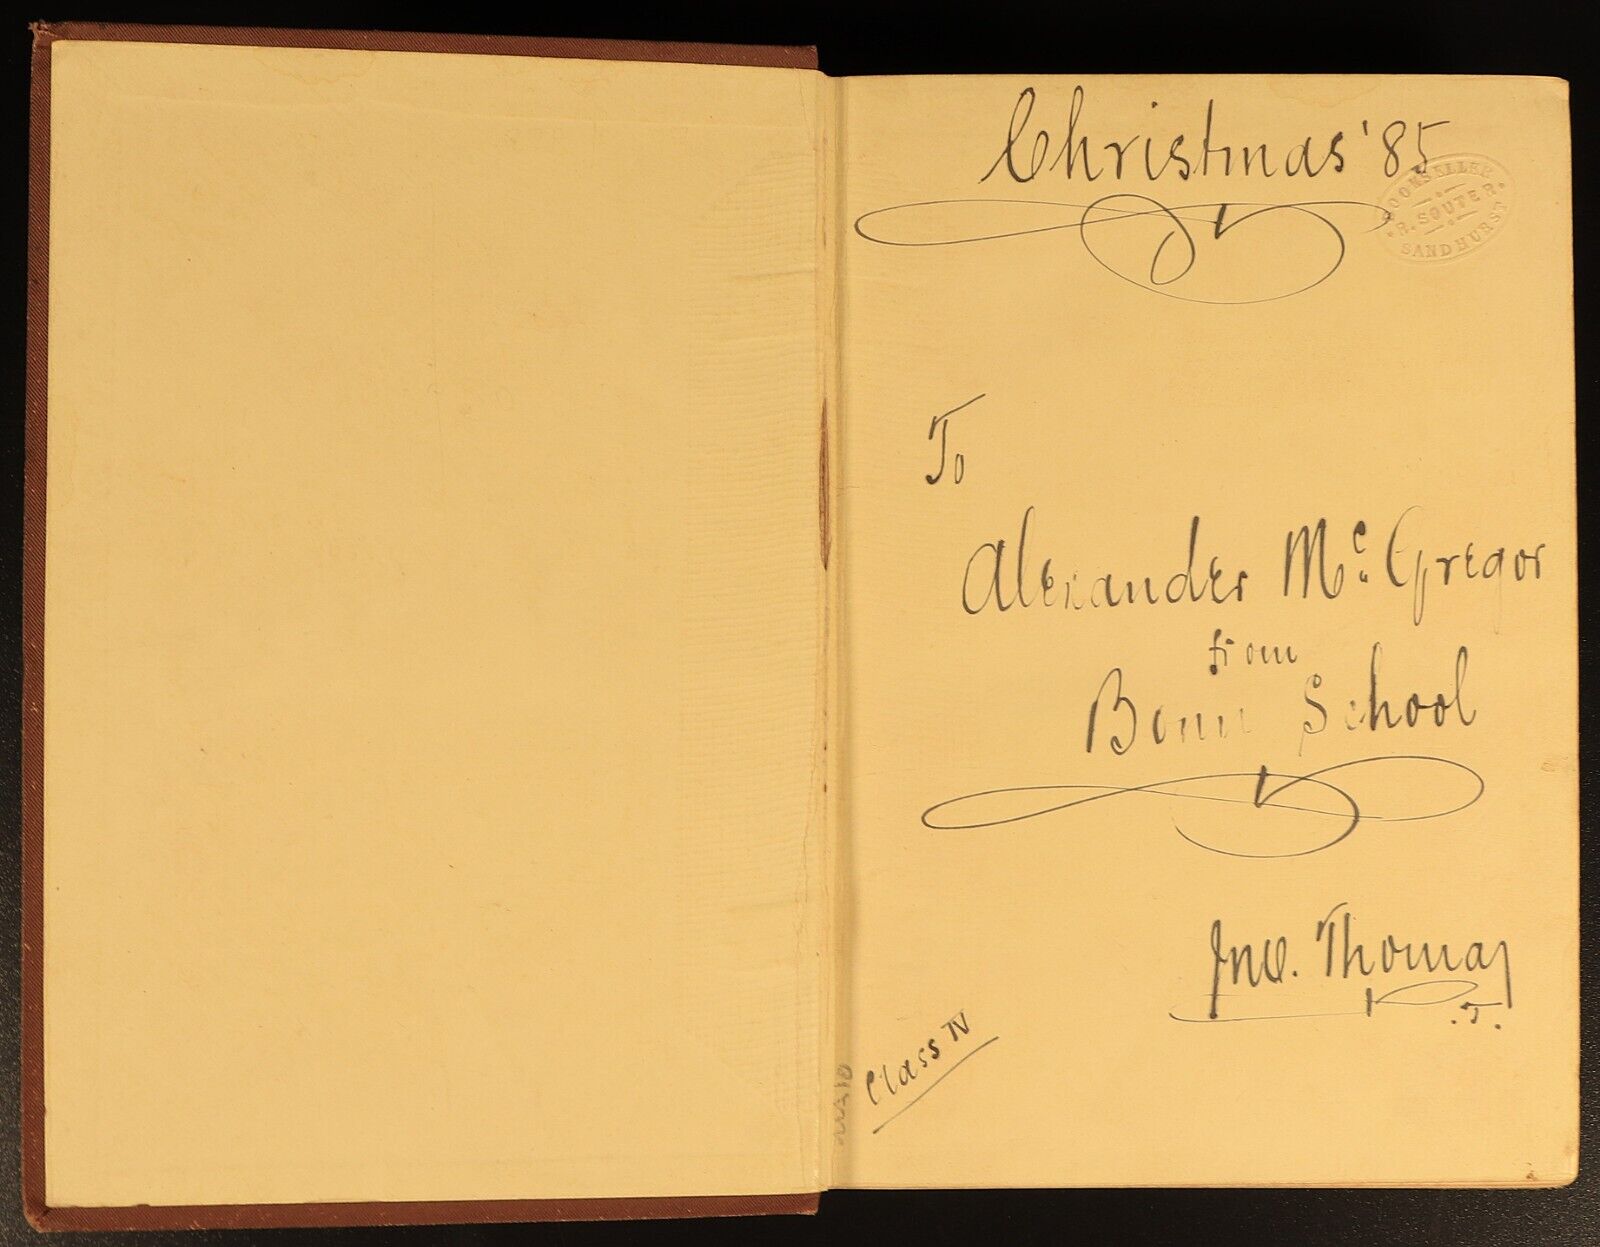 Christmas '85
BOOKSELLER
R. SOUTER.
SANDHURST
To
Alexander Mc. Gregor
from
Bonn School
Jno. Thomas
.T.
Class IV